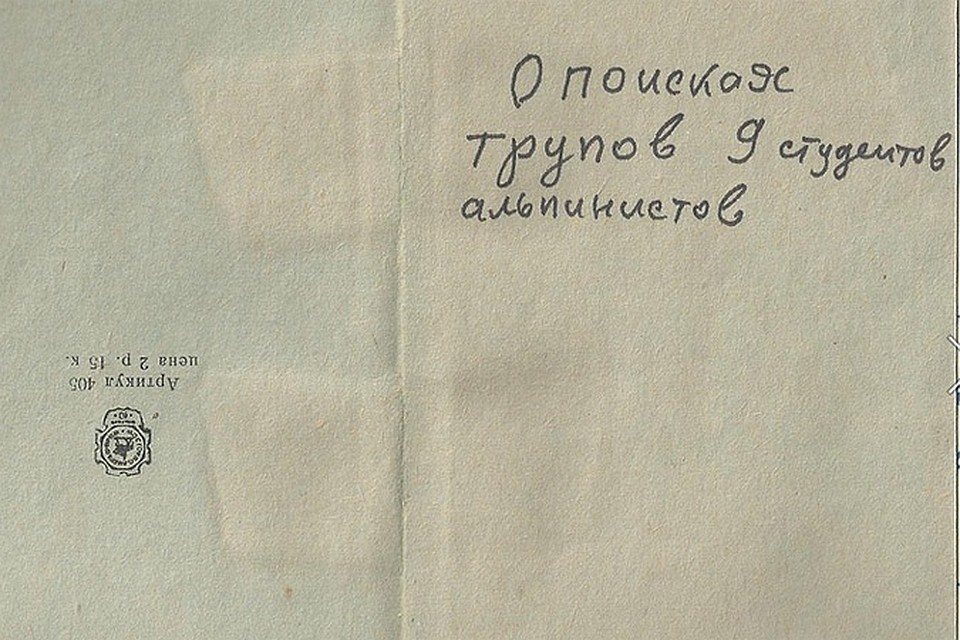 О поисках
трупов 9 студентов
альпинистов
Артикул 405
цена 2 р. 15 к.